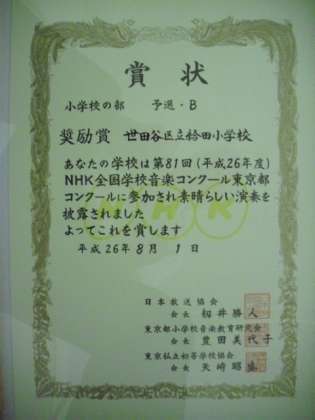 賞状
小学校の部 予選・B
奨励賞 世田谷区立松田小学校
あなたの学校は第81回(平成26年度)
NHK全国学校音楽コンクール東京都
コンクールに参加され素晴らしい演奏を
披露されました
よってこれを賞します
平成26年8月1日
日本放送協会
会長 籾井勝人
東京都小学校音楽教育研究会
会長 豊田美代子
東京私立初等学校協会
会長 矢崎昭盛
NHK